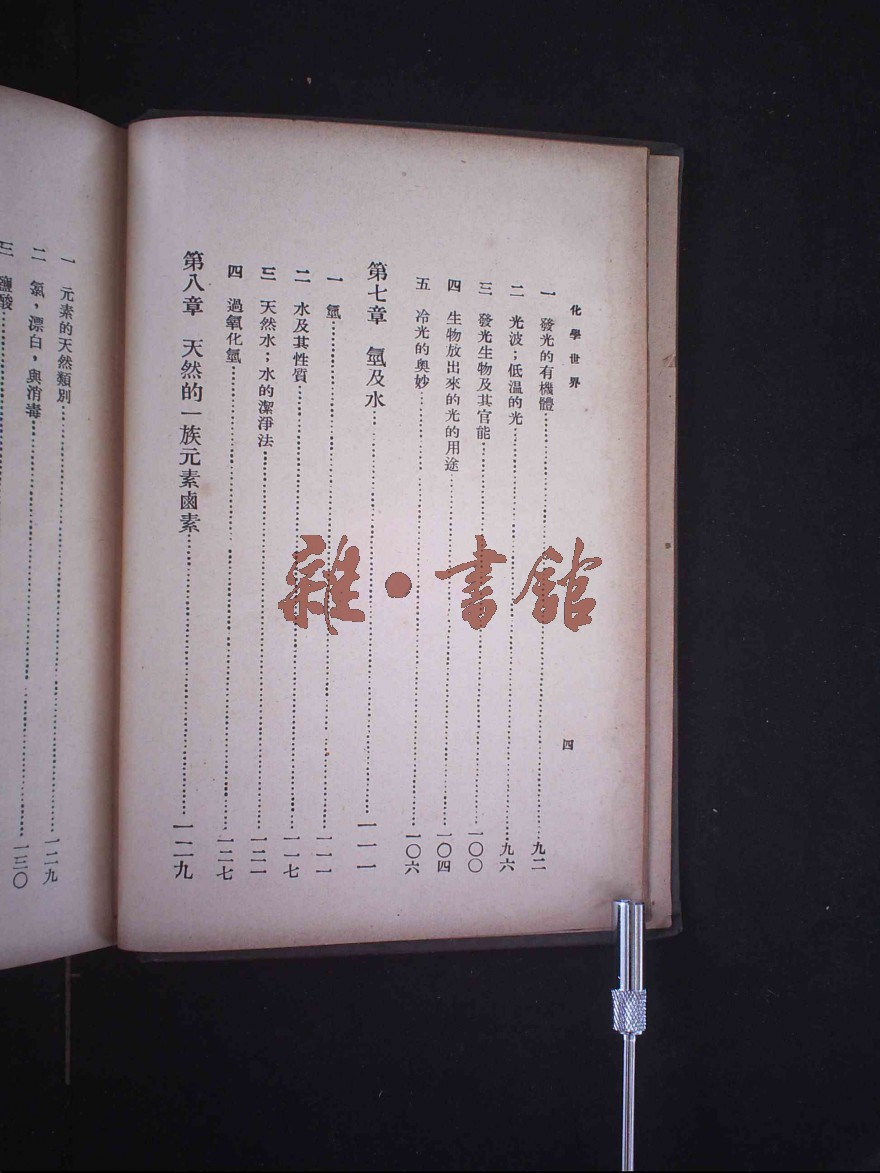 化學世界
四
一　發光的有機體……九二
二　光波；低溫的光……九六
三　發光生物及其官能……一〇〇
四　生物放出來的光的用途……一〇四
五　冷光的奧妙……一〇六
第七章　氫及水……一一一
一　氫……一一一
二　水及其性質……一一七
三　天然水；水的潔淨法……一二一
四　過氧化氫……一二七
第八章　天然的一族元素鹵素……一二九
一　元素的天然類別……一二九
二　氯，漂白，與消毒……一三〇
三　鹽酸……
雜·書館